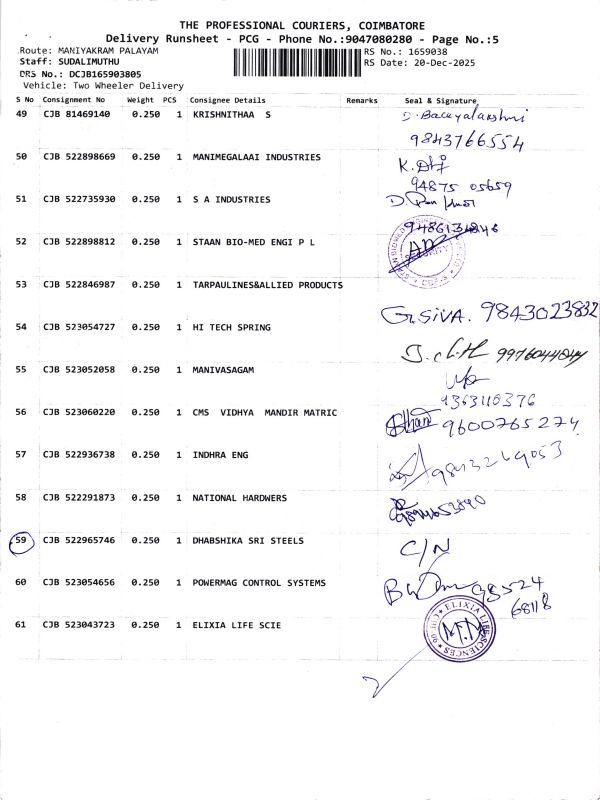 THE PROFESSIONAL COURIERS, COIMBATORE
Delivery Runsheet - PCG - Phone No.:9047080280 - Page No.:5
Route: MANIYAKRAM PALAYAM RS No.: 1659038
Staff: SUDALIMUTHU RS Date: 20-Dec-2025
DRS No.: DCJB165903805
Vehicle: Two Wheeler Delivery
S No Consignment No Weight PCS Consignee Details Remarks Seal & Signature
49 CJB 81469140 0.250 1 KRISHNITHAA S
9843766554
50 CJB 522898669 0.250 1 MANIMEGALAAI INDUSTRIES
94875 05659
51 CJB 522735930 0.250 1 S A INDUSTRIES
52 CJB 522898812 0.250 1 STAAN BIO-MED ENGI P L
53 CJB 522846987 0.250 1 TARPAULINES&ALLIED PRODUCTS
G.SIVA. 9843023832
54 CJB 523054727 0.250 1 HI TECH SPRING
9976044044
55 CJB 523052058 0.250 1 MANIVASAGAM
9363110376
56 CJB 523060220 0.250 1 CMS VIDHYA MANDIR MATRIC
9600765274
57 CJB 522936738 0.250 1 INDHRA ENG
58 CJB 522291873 0.250 1 NATIONAL HARDWERS
59 CJB 522965746 0.250 1 DHABSHIKA SRI STEELS C/N
60 CJB 523054656 0.250 1 POWERMAG CONTROL SYSTEMS 98524
68118
61 CJB 523043723 0.250 1 ELIXIA LIFE SCIE
ELIXIA LIFE SCIENCES